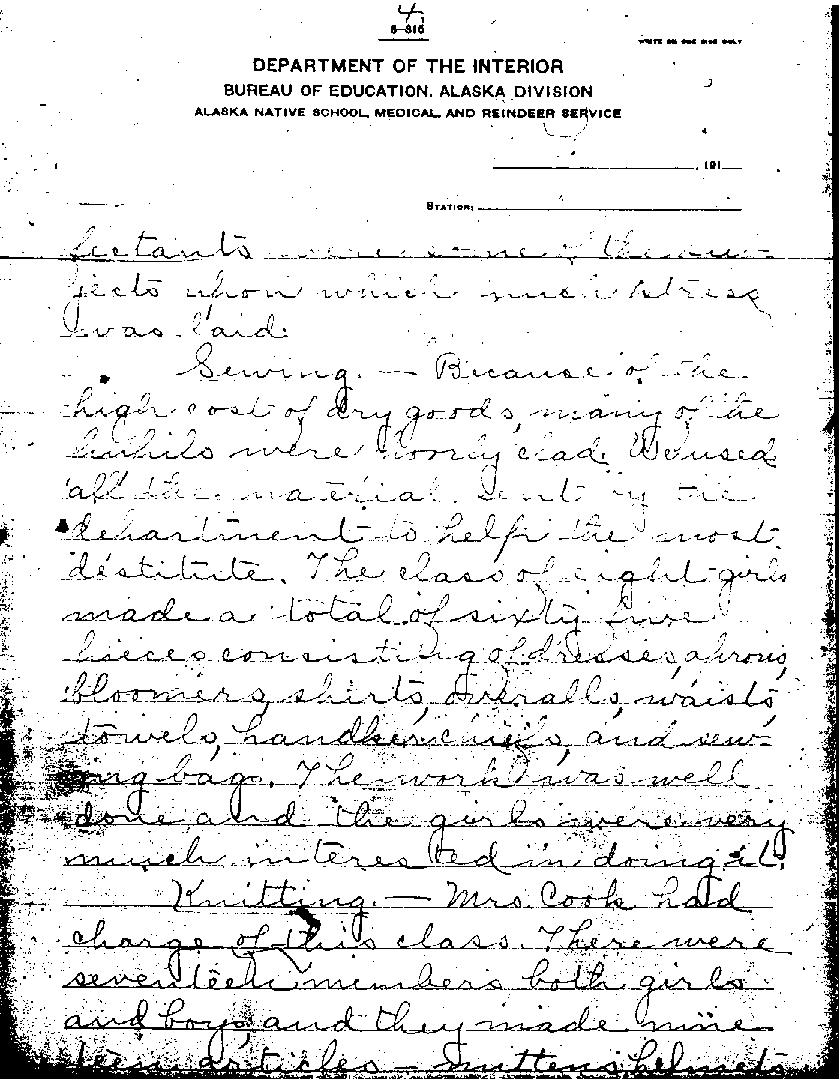 4
6-816
WRITE ON ONE SIDE ONLY
DEPARTMENT OF THE INTERIOR
BUREAU OF EDUCATION, ALASKA DIVISION
ALASKA NATIVE SCHOOL, MEDICAL, AND REINDEER SERVICE
, 191
STATION:
fectants were some of the sub-
jects upon which much stress
was laid.
Sewing. — Because of the
high cost of dry goods, many of the
pupils were poorly clad. We used
all the material sent by the
department to help the most
destitute. The class of eight girls
made a total of sixty five
pieces consisting of dresses, aprons,
bloomers, shirts, overalls, waists,
towels, handkerchiefs, and sew-
ing bags. The work was well
done and the girls were very
much interested in doing it.
Knitting. — Mrs. Cook had
charge of this class. There were
seventeen members both girls
and boys, and they made nine
teen articles — mittens, helmets